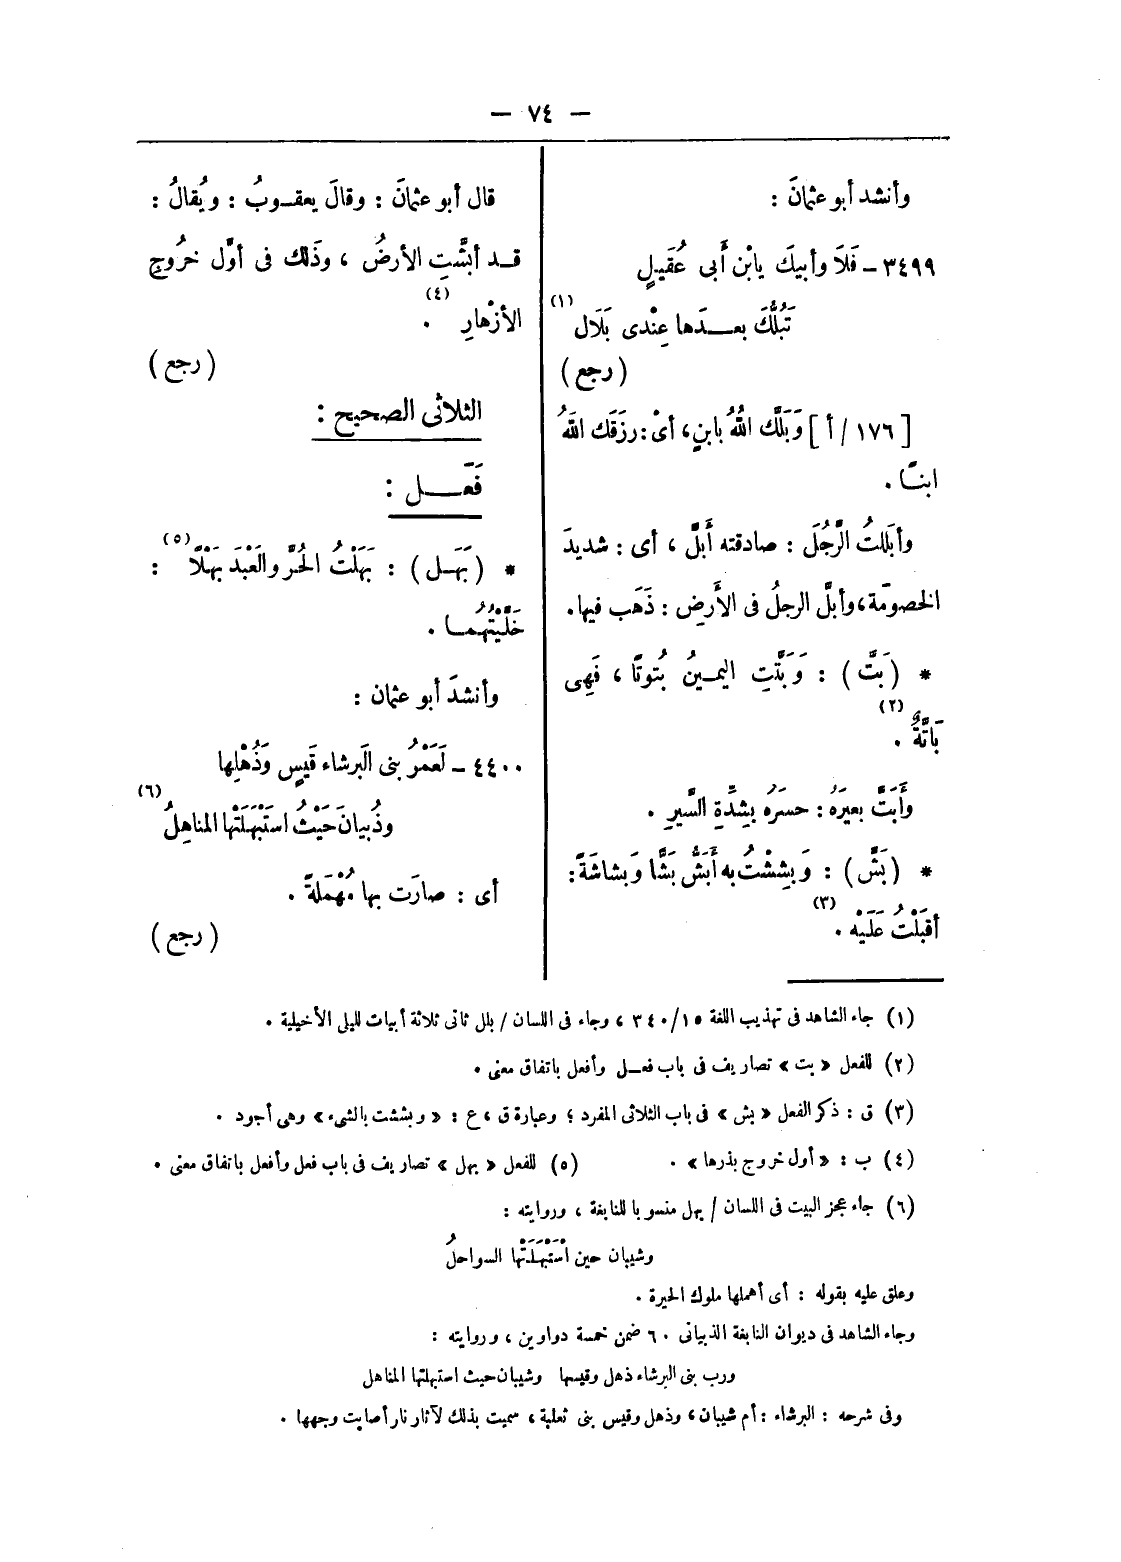 — ٧٤ —
وأنشد أبو عثمانَ :
٣٤٩٩ – فَلَا وأبيكَ يابْن أَبى عُقَيلٍ
تَبُلُّكَ بعــدَها عِنْدى بَلَال (١)
( رجع )
[ ١٧٦ / أ ] وَبَلَّك اللهُ بابنٍ، أىْ : رزَقَك اللهُ
ابنــًا .
وأبَللتُ الرَّجُلَ : صادقته أَبلَّ ، أى : شديدَ
الخصومَة، وأبلَّ الرجلُ فى الأَرضِ : ذَهَب فيها .
* ( بَتَّ ) : وَبَتَّتِ اليمـينُ بُتوتًا ، فَهِى
بَاتَّةٌ (٢) .
وأَبَتَّ بعيَرَهُ : حسَرَه بشِدَّةِ السَّيرِ .
* ( بَشَّ ) : وَبشِشْتُ به أَبَشُّ بَشًّا وَبشاشَةً :
أقبَلْتُ عَلَيْه (٣) .
قال أبو عثمانَ : وقالَ يعقـوبُ : ويُقالُ :
قــد أبشَّتِ الأرضُ ، وذَلك فى أوَّل خرُوجِ
الأزْهارِ (٤) .
( رجع )
الثلاثى الصحيح :
فَعَّــــل :
* ( بَهَـل ) : بَهَلْتُ الحُرَّ والعَبْدَ بَهْلًا (٥) :
خَلَّيتُهُمــا .
وأنشدَ أبو عثمان :
٤٤٠٠ – لَعَمْرُ بنى البَرشاء قَيسٍ وَذُهْلِها
وذُبيانَ حَيْثُ استَبْهَلَتْها المناهِلُ (٦)
أى : صارَت بها مُهْمَلةً .
( رجع )
(١) جاء الشاهد فى تهذيب اللغة ١٥/ ٣٤٠ ، وجاء فى اللسان / بلل ثانى ثلاثة أبيات لليلى الأخيلية .
(٢) للفعل « بت » تصاريف فى باب فعـل وأفعل باتفاق معنى .
(٣) ق : ذكر الفعل « بش » فى باب الثلاثى المفرد ؛ وعبارة ق ، ع : « وبششت بالشىء » وهى أجود .
(٤) ب : « أول خروج بذرها » . (٥) للفعل « بهل » تصاريف فى باب فعل وأفعل باتفاق معنى .
(٦) جاء عجز البيت فى اللسان / بهل منسوبا للنابغة ، وروايته :
وشيبان حين اسْتَبْهَلَتْها السواحلُ
وعلق عليه بقوله : أى أهملها ملوك الحيرة .
وجاء الشاهد فى ديوان النابغة الذبيانى ٦٠ ضمن خمسة دواوين ، وروايته :
ورب بنى البرشاء ذهل وقيسها وشيبان حيث استبهلتها المناهل
وفى شرحه : البرشاء : أم شيبان ، وذهل وقيس بنى ثعلبة ، سميت بذلك لآثار نار أصابت وجهها .